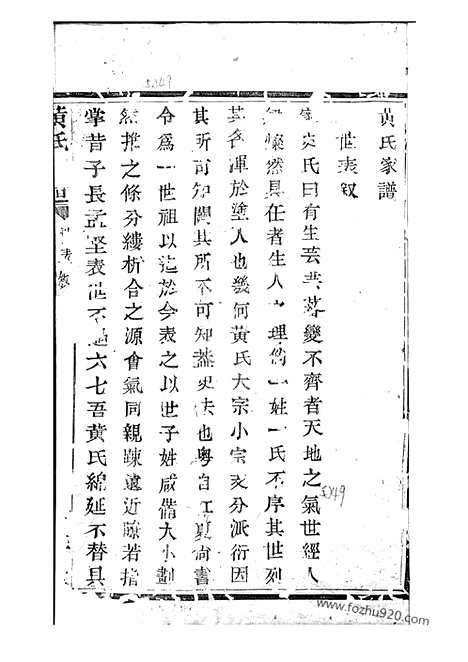 黃氏家譜
世表叙
氏曰有生芸芸萃變不齊者天地之氣世經人
燦然具在者生人之理倘一姓一氏不序其世列
其各渾於塗人也幾何黃氏大宗小宗支分派衍因
其所可知闕其所不可知蓋史法也粤自江夏尚書
令爲一世祖以迄於今表之以世子姓咸備大小劃
然推之條分縷析合之源會氣同親踈遠近瞭若指
掌昔子長孟堅表世不過六七吾黃氏綿延不替具
黃氏
世表叙
5249
5249
www.fozhu920.com